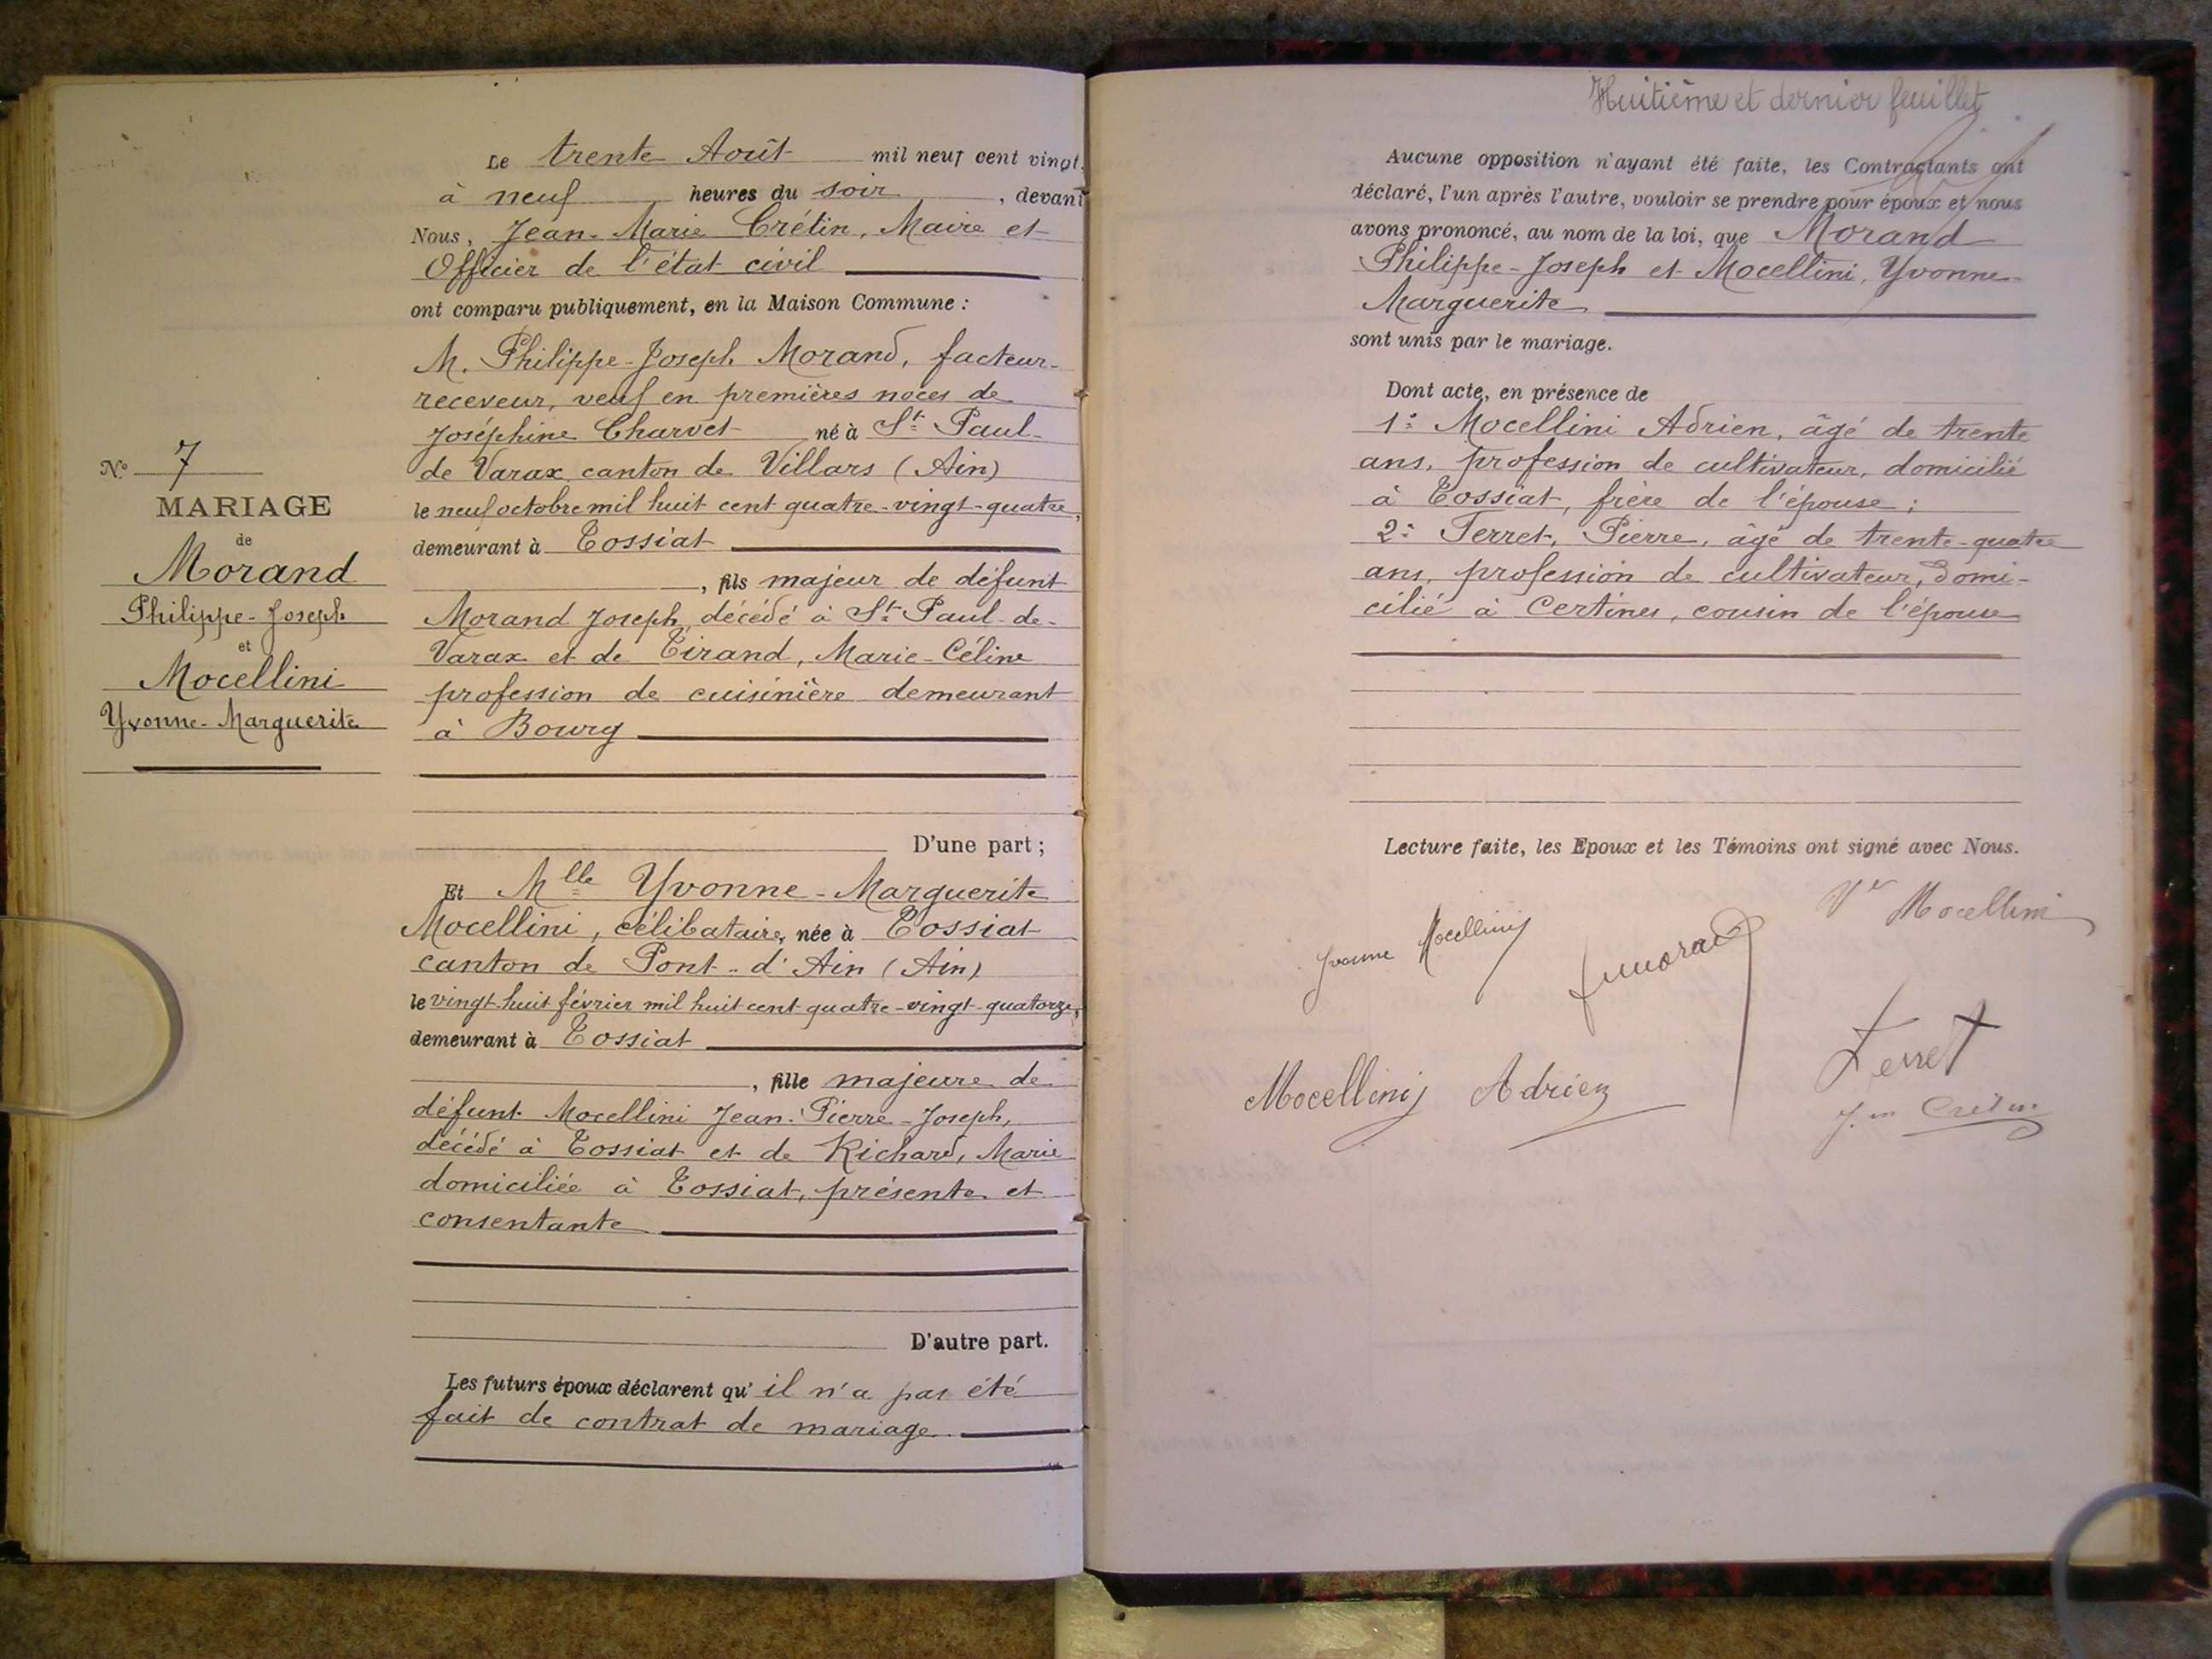 N° 7
MARIAGE
de
Morand
Philippe-Joseph
et
Mocellini
Yvonne-Marguerite
Le trente Août mil neuf cent vingt,
à neuf heures du soir, devant
Nous, Jean-Marie Crétin, Maire et
Officier de l'état civil
ont comparu publiquement, en la Maison Commune :
M. Philippe-Joseph Morand, facteur-
receveur, veuf en premières noces de
Joséphine Charvet né à St Paul-
de Varax canton de Villars (Ain)
le neuf octobre mil huit cent quatre-vingt-quatre,
demeurant à Tossiat
, fils majeur de défunt
Morand Joseph, décédé à St Paul-de-
Varax et de Tirand, Marie-Céline
profession de cuisinière demeurant
à Bourg
D'une part ;
Et Mlle Yvonne-Marguerite
Mocellini, célibataire, née à Tossiat
canton de Pont-d'Ain (Ain)
le vingt-huit février mil huit cent quatre-vingt-quatorze,
demeurant à Tossiat
, fille majeure de
défunt Mocellini Jean-Pierre-Joseph,
décédé à Tossiat et de Richard, Marie
domiciliée à Tossiat, présente et
consentante
D'autre part.
Les futurs époux déclarent qu'il n'a pas été
fait de contrat de mariage.
Huitième et dernier feuillet
Aucune opposition n'ayant été faite, les Contractants ont
déclaré, l'un après l'autre, vouloir se prendre pour époux et nous
avons prononcé, au nom de la loi, que Morand
Philippe-Joseph et Mocellini, Yvonne-
Marguerite
sont unis par le mariage.
Dont acte, en présence de
1° Mocellini Adrien, âgé de trente
ans, profession de cultivateur, domicilié
à Tossiat, frère de l'épouse ;
2° Ferret, Pierre, âgé de trente-quatre
ans, profession de cultivateur, domi-
cilié à Certines, cousin de l'épouse
Lecture faite, les Epoux et les Témoins ont signé avec Nous.
Vve Mocellini
Yvonne Mocellini
Morand
Mocellini Adrien
Ferret
Crétin